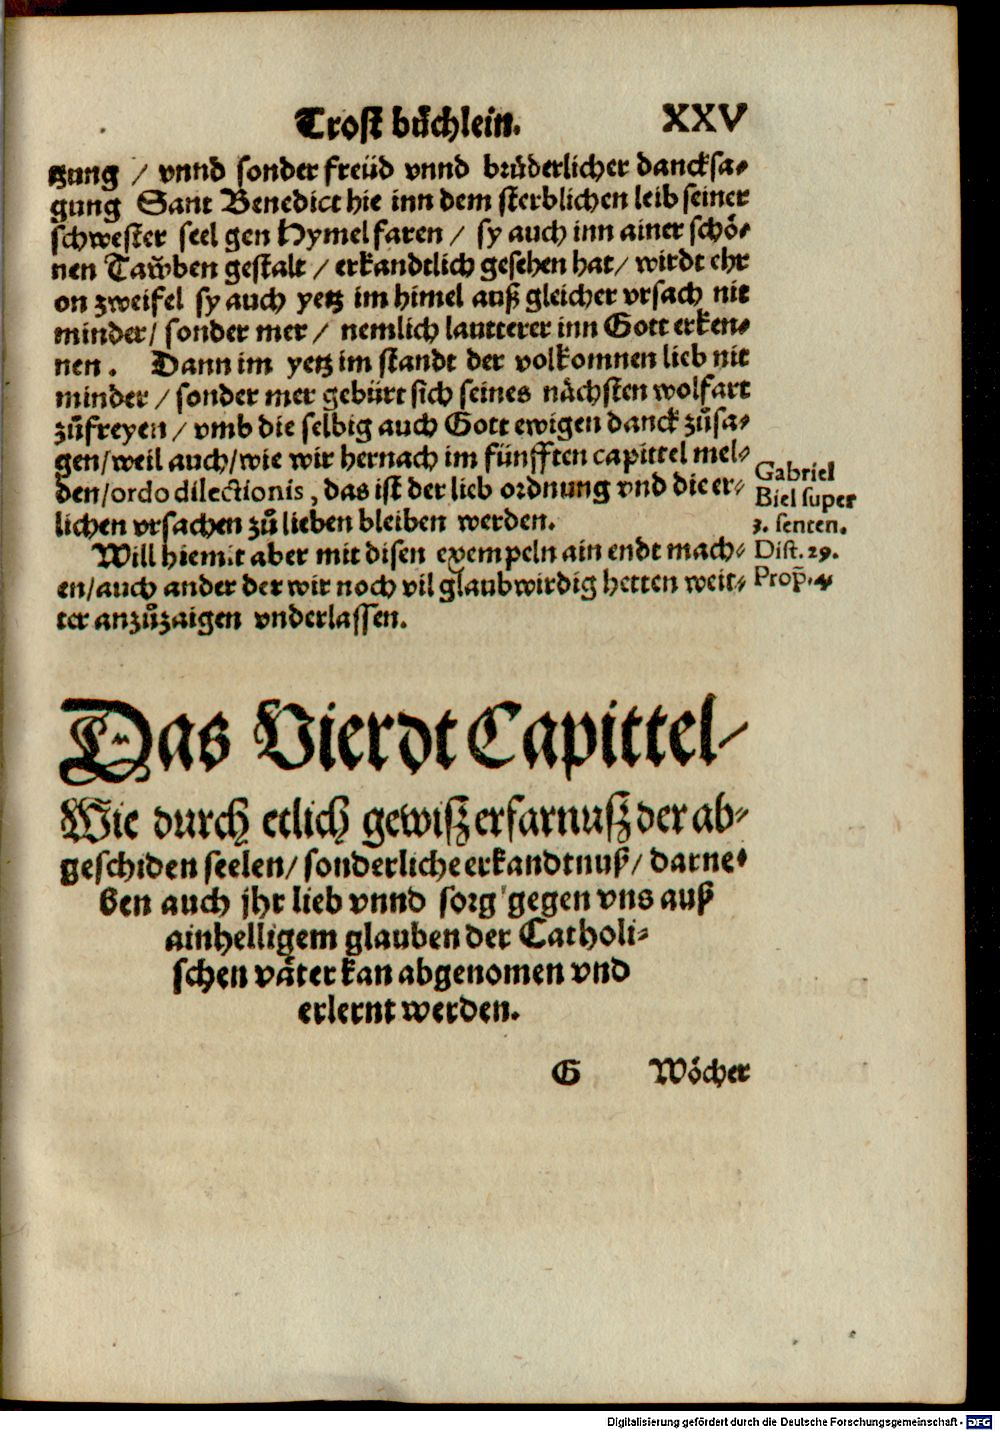 Trost bůchlein. XXV
tzung / vnnd sonder freüd vnnd brůderlicher dancksa-
gung Sant Benedict hie inn dem sterblichen leib seiner
schwester seel gen Hymel faren / sy auch inn ainer schö-
nen Taẅben gestalt / erkandtlich gesehen hat / wirdt ehr
on zweifel sy auch yetz im himel auß gleicher vrsach nit
minder / sonder mer / nemlich lautterer inn Gott erken-
nen. Dann im yetz im standt der volkomnen lieb nit
minder / sonder mer gebürt sich seines nächsten wolfart
zůfreyen / vmb die selbig auch Gott ewigen danck zůsa-
gen / weil auch / wie wir hernach im fünfften capittel mel-
den / ordo dilectionis, das ist der lieb ordnung vnd die er-
lichen vrsachen zů lieben bleiben werden.
Will hiemit aber mit disen exempeln ain endt mach-
en / auch ander der wir noch vil glaubwirdig hetten weit-
ter anzůzaigen vnderlassen.
Gabriel
Biel super
3. senten.
Dist. 29.
Prop̄. 4
Das Vierdt Capittel-
Wie durch etlich gewisz erfarnusz der ab-
geschiden seelen / sonderliche erkandtnuß / darne-
ben auch jhr lieb vnnd sorg gegen vns auß
ainhelligem glauben der Catholi-
schen väter kan abgenomen vnd
erlernt werden.
G Wöcher
Digitalisierung gefördert durch die Deutsche Forschungsgemeinschaft - DFG